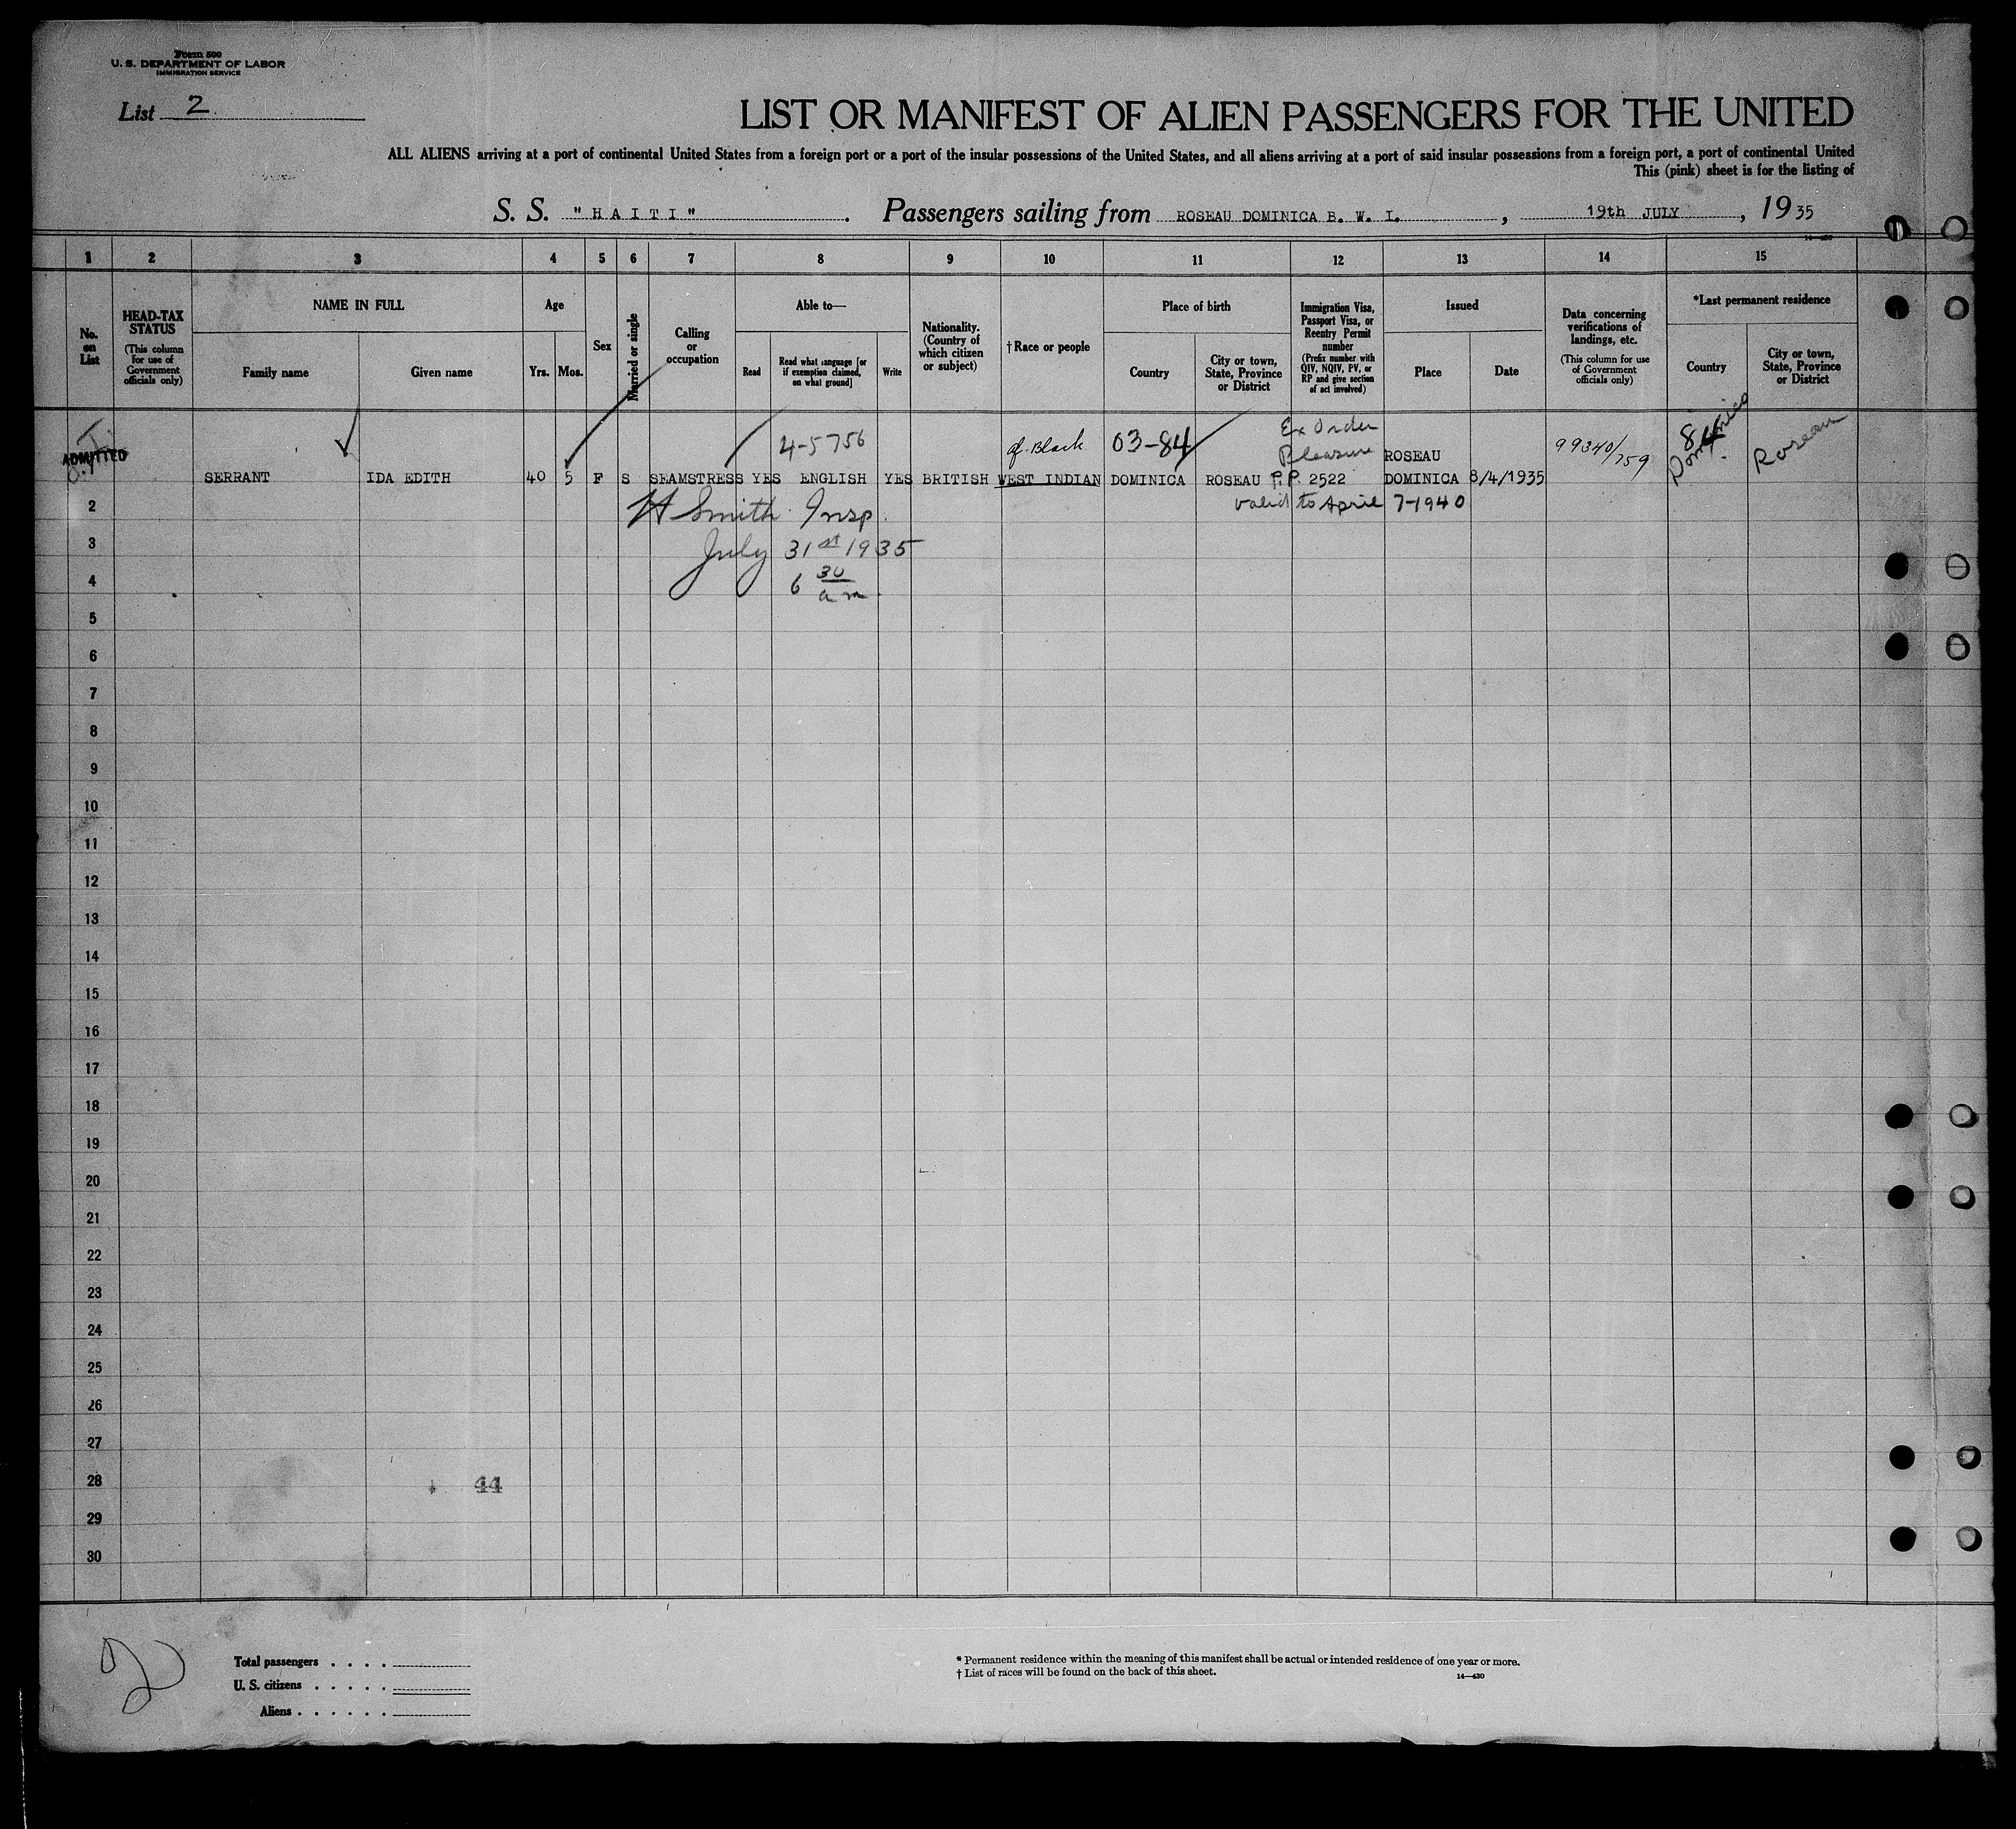 Form 500
U. S. DEPARTMENT OF LABOR
IMMIGRATION SERVICE
List 2
LIST OR MANIFEST OF ALIEN PASSENGERS FOR THE UNITED
ALL ALIENS arriving at a port of continental United States from a foreign port or a port of the insular possessions of the United States, and all aliens arriving at a port of said insular possessions from a foreign port, a port of continental United
This (pink) sheet is for the listing of
S. S. "HAITI". Passengers sailing from ROSEAU DOMINICA B. W. I., 19th JULY, 1935
14—430
1 2 3 4 5 6 7 8 9 10 11 12 13 14 15
No. on List
HEAD-TAX STATUS
(This column for use of Government officials only)
NAME IN FULL
Family name
Given name
Age
Yrs.
Mos.
Sex
Married or single
Calling or occupation
Able to—
Read
Read what language [or if exemption claimed, on what ground]
Write
Nationality. (Country of which citizen or subject)
† Race or people
Place of birth
Country
City or town, State, Province or District
Immigration Visa, Passport Visa, or Reentry Permit number
(Prefix number with QIV, NQIV, PV, or RP and give section of act involved)
Issued
Place
Date
Data concerning verifications of landings, etc.
(This column for use of Government officials only)
*Last permanent residence
Country
City or town, State, Province or District
ADMITTED
4-5756
Af. Black
03-84
Ex Order
Pleasure
ROSEAU
99340/759
84
Dominica
Roseau
SERRANT IDA EDITH 40 5 F S SEAMSTRESS YES ENGLISH YES BRITISH WEST INDIAN DOMINICA ROSEAU P.P. 2522 DOMINICA 8/4/1935
valid to April 7-1940
H Smith Insp.
July 31st 1935
6 30 am
2
3
4
5
6
7
8
9
10
11
12
13
14
15
16
17
18
19
20
21
22
23
24
25
26
27
28
44
29
30
2
Total passengers
U. S. citizens
Aliens
* Permanent residence within the meaning of this manifest shall be actual or intended residence of one year or more.
† List of races will be found on the back of this sheet.
14—430